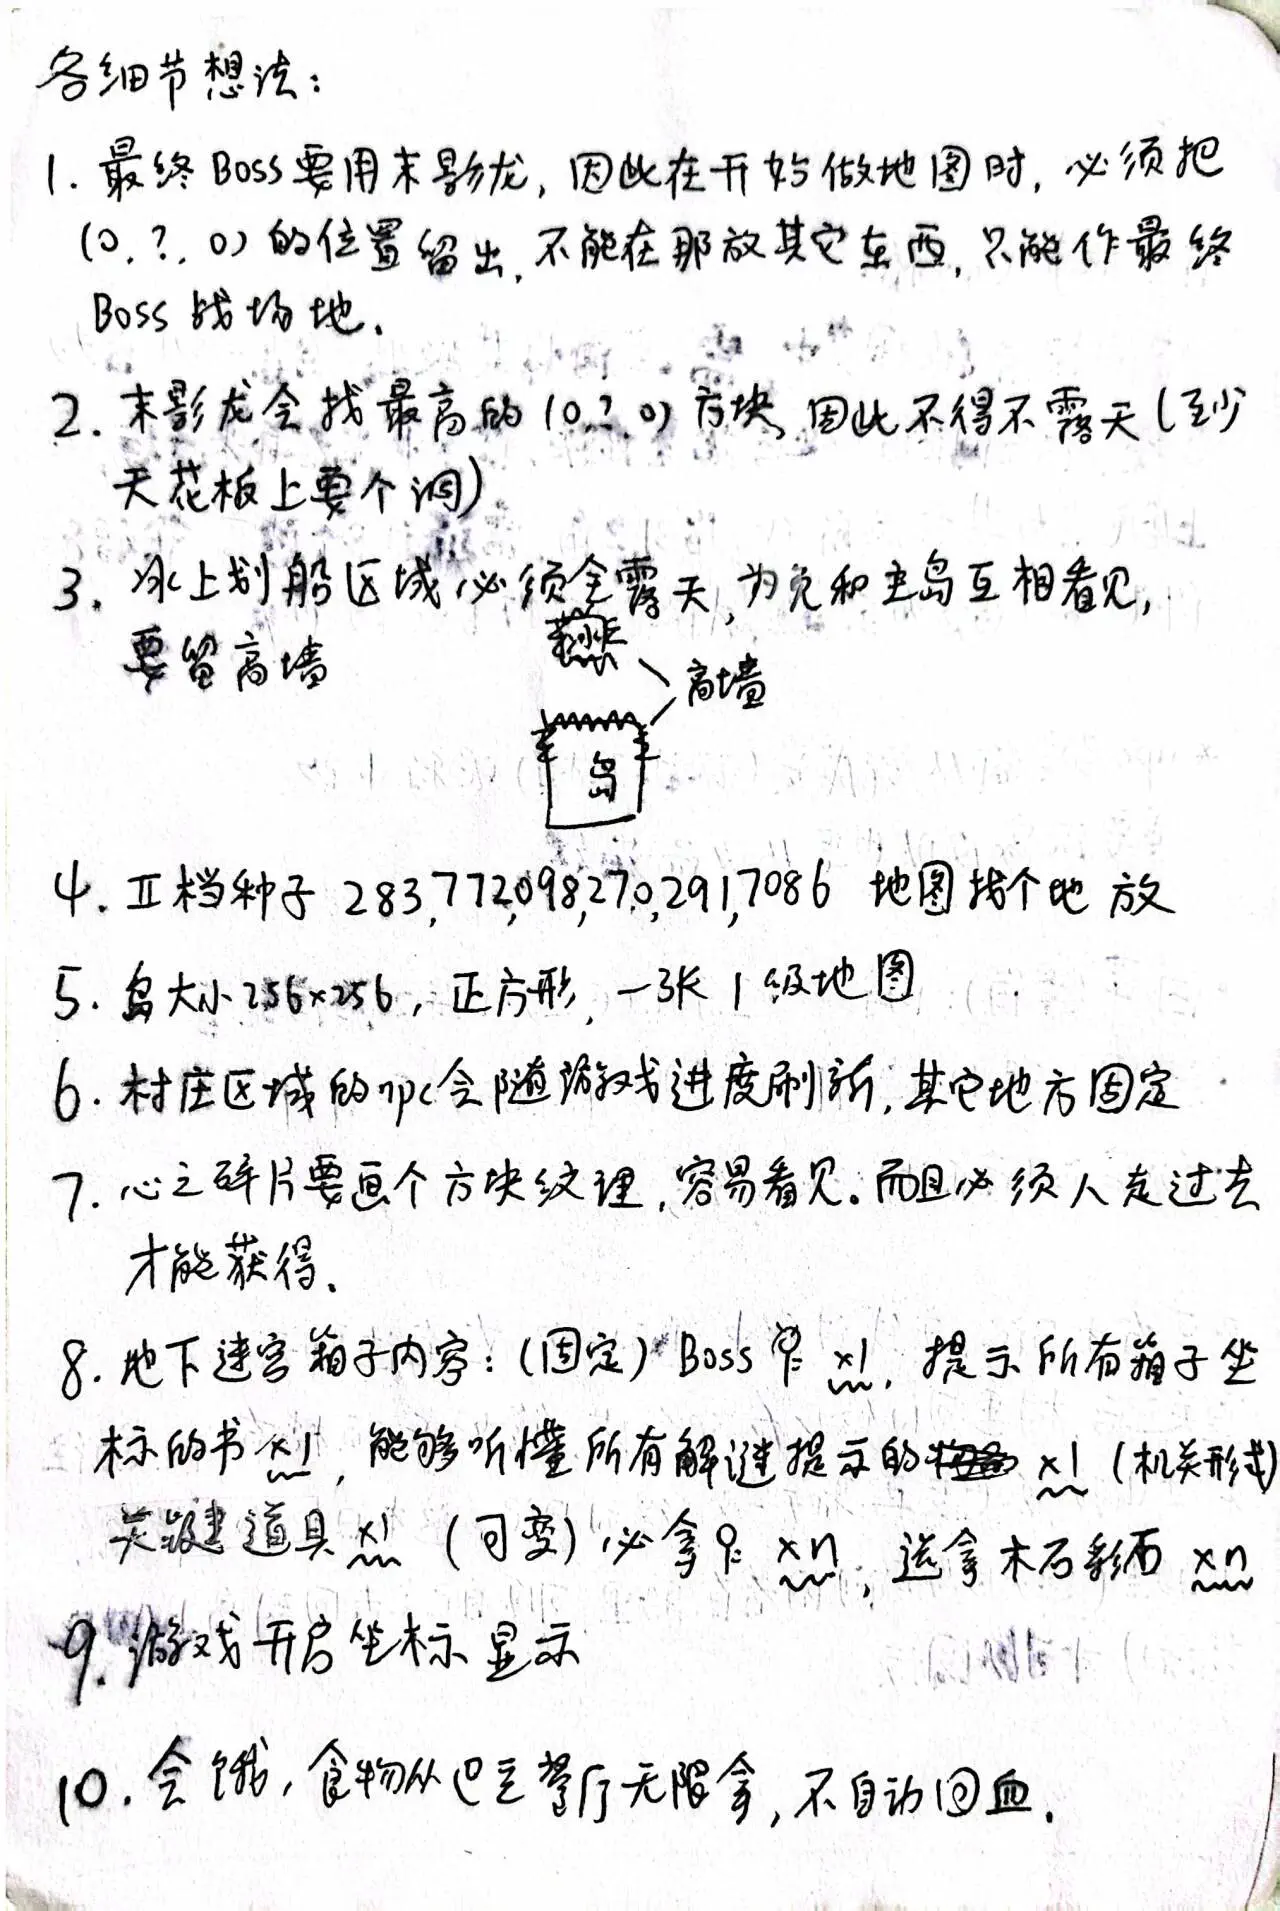 各细节想法：
1. 最终Boss要用末影龙，因此在开始做地图时，必须把
(0,?,0)的位置留出，不能在那放其它东西，只能作最终
Boss战场地.
2. 末影龙会找最高的(0,?,0)方块，因此不得不露天(至少
天花板上要个洞)
3. 冰上划船区域必须全露天，为免和主岛互相看见，
要留高墙
高墙
岛
4. Ⅱ档种子 283,772,098,270,291,7086 地图找个地放
5. 岛大小256×256，正方形，一张1级地图
6. 村庄区域的npc会随游戏进度刷新，其它地方固定
7. 心之碎片要画个方块纹理，容易看见。而且必须人走过去
才能获得.
8. 地下迷宫箱子内容：(固定) Boss ×1，提示所有箱子坐
标的书×1，能够听懂所有解谜提示的 ×1 (机关形式)
关键道具×1 (可变)必拿 ×n，选拿木石彩雨×n
9. 游戏开启坐标显示
10. 会饿，食物从 餐厅无限拿，不自动回血.